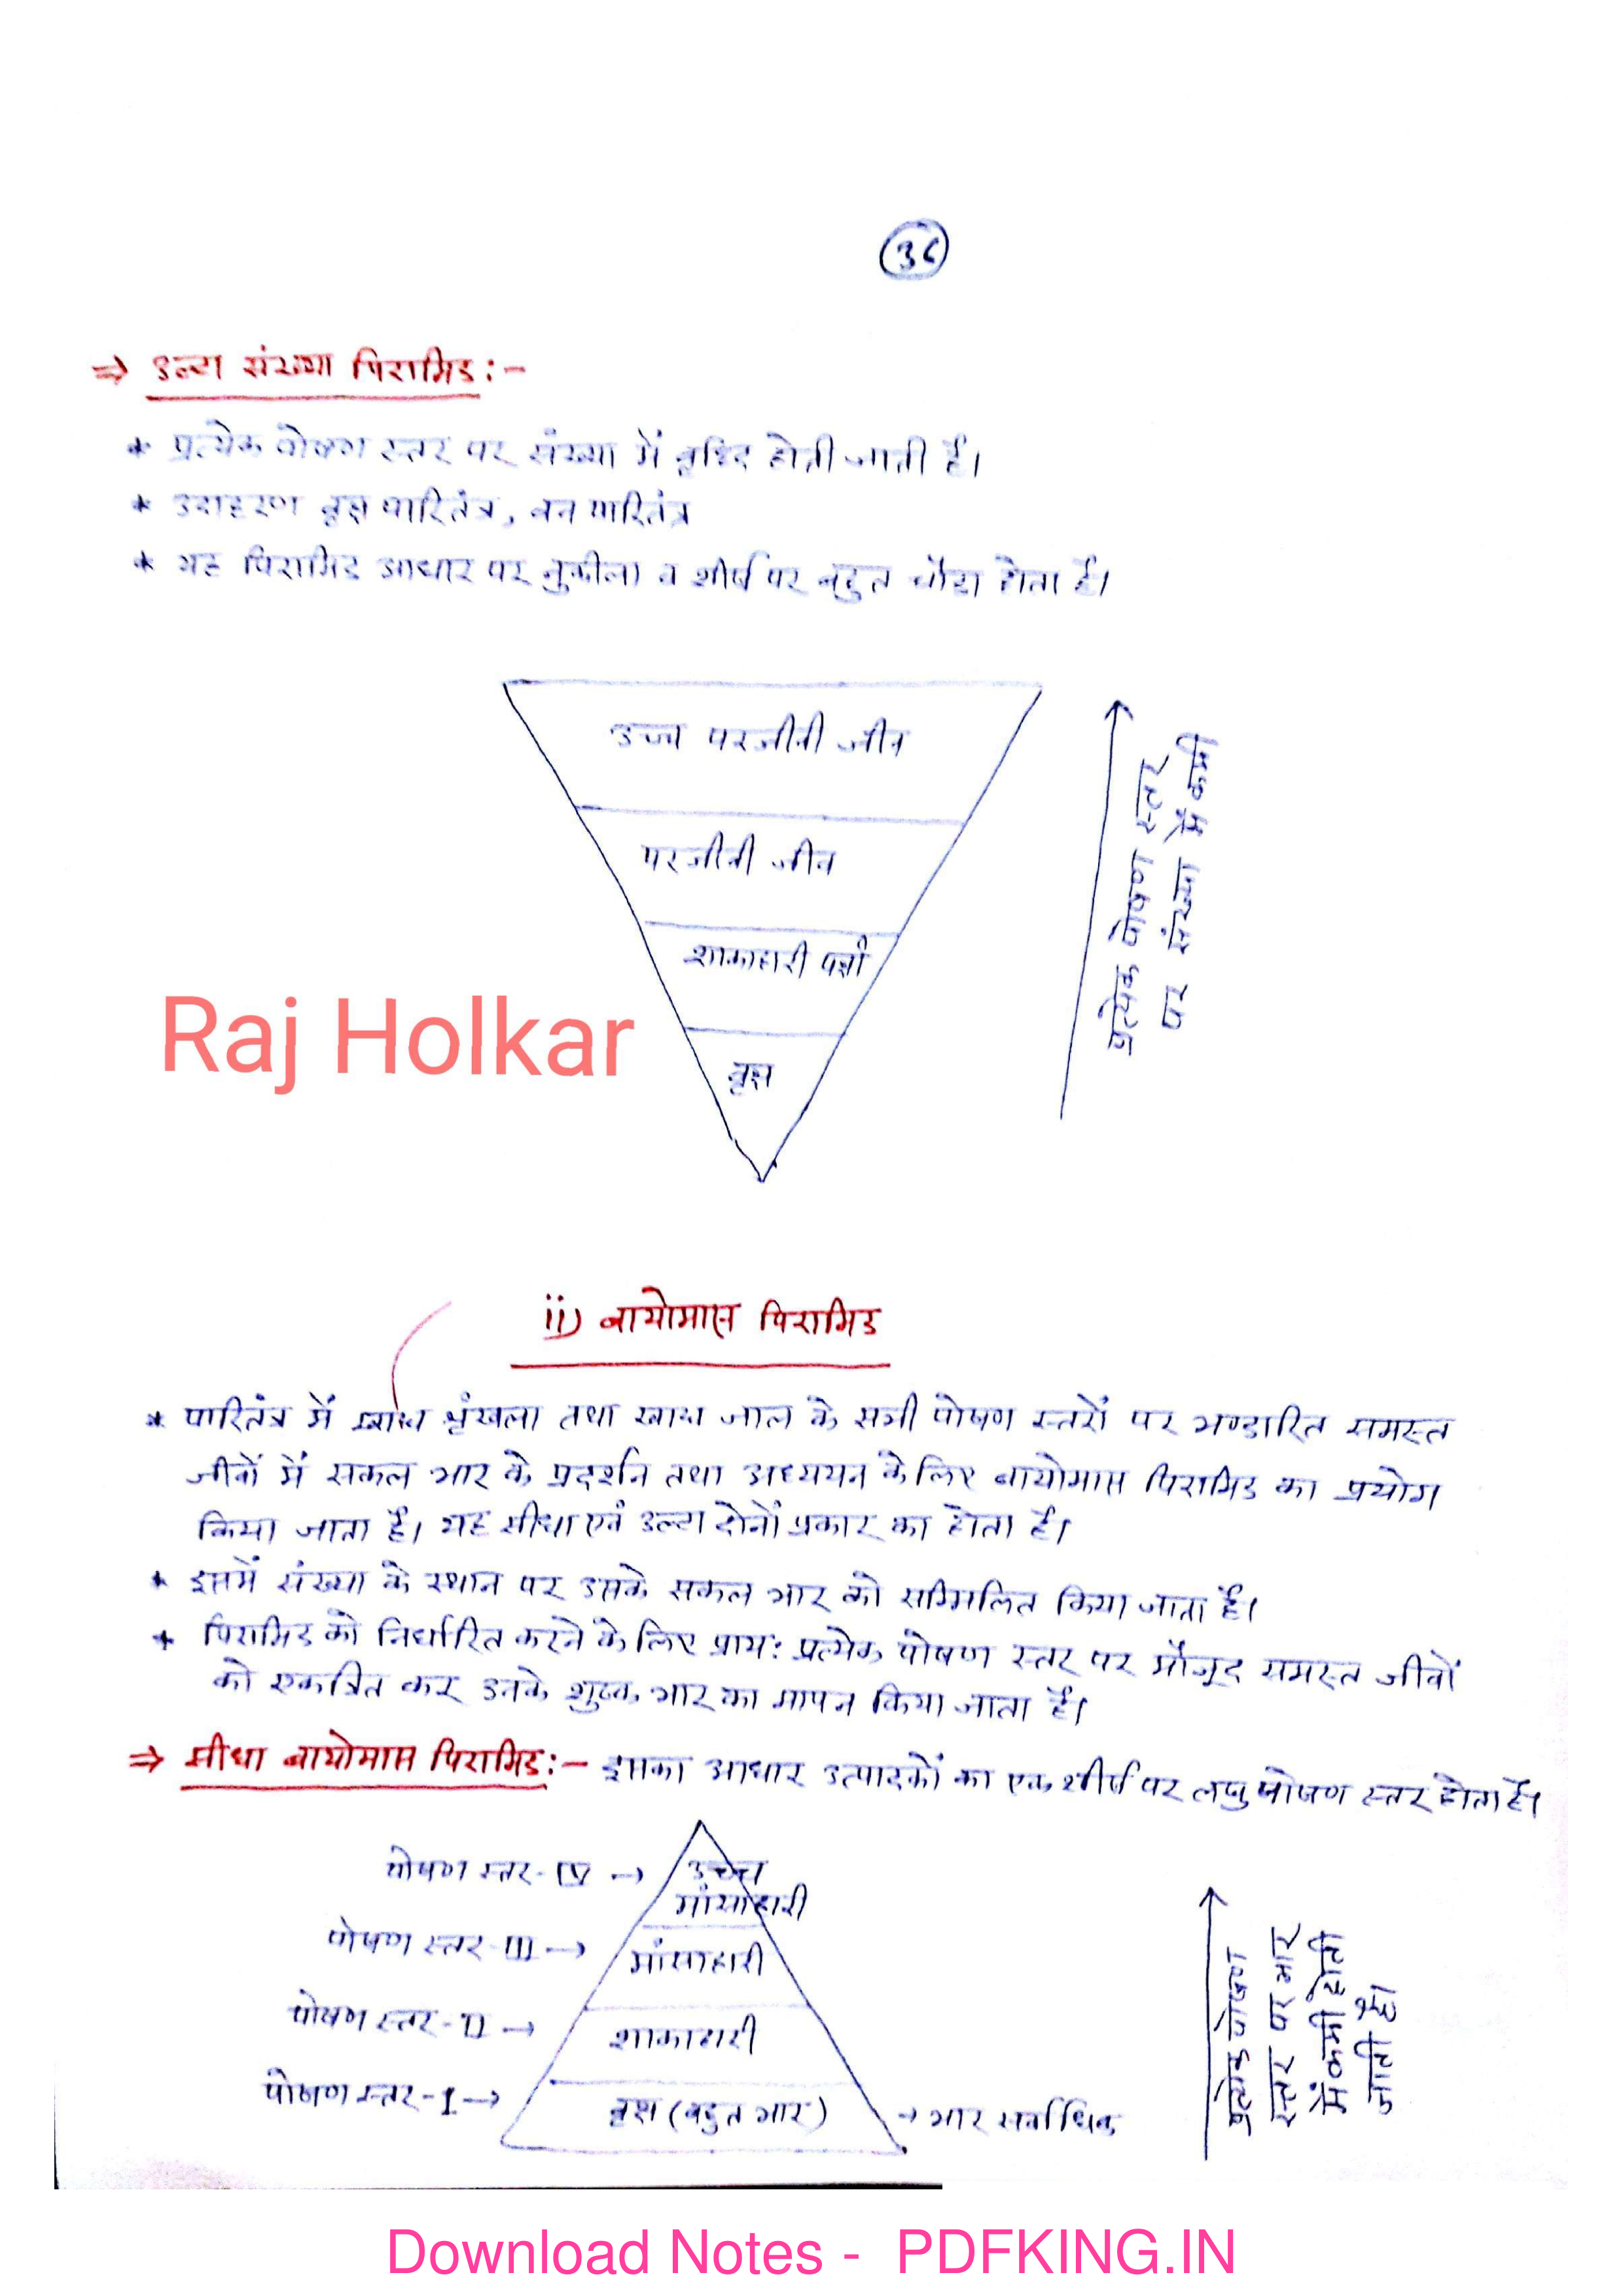 36
⇒ उल्टा संख्या पिरामिड :-
* प्रत्येक पोषण स्तर पर संख्या में वृद्धि होती जाती है।
* उदाहरण वृक्ष पारितंत्र, वन पारितंत्र
* यह पिरामिड आधार पर नुकीला व शीर्ष पर बहुत चौड़ा होता है।
उच्च परजीवी जीव
परजीवी जीव
शाकाहारी पक्षी
वृक्ष
प्रत्येक पोषण स्तर
पर संख्या में कमी
Raj Holkar
ii) बायोमास पिरामिड
* पारितंत्र में खाद्य श्रृंखला तथा खाद्य जाल के सभी पोषण स्तरों पर भण्डारित समस्त
जीवों में सकल भार के प्रदर्शन तथा अध्ययन के लिए बायोमास पिरामिड का प्रयोग
किया जाता है। यह सीधा एवं उल्टा दोनों प्रकार का होता है।
* इसमें संख्या के स्थान पर उसके सकल भार को सम्मिलित किया जाता है।
* पिरामिड को निर्धारित करने के लिए प्रायः प्रत्येक पोषण स्तर पर मौजूद समस्त जीवों
को एकत्रित कर उनके शुष्क भार का मापन किया जाता है।
⇒ सीधा बायोमास पिरामिड :- इसका आधार उत्पादकों का एक शीर्ष पर लघु पोषण स्तर होता है।
पोषण स्तर - IV → उच्च
मांसाहारी
पोषण स्तर - III → मांसाहारी
पोषण स्तर - II → शाकाहारी
पोषण स्तर - I → वृक्ष (बहुत भार) → भार सर्वाधिक
प्रत्येक पोषण
स्तर पर भार
में कमी होती
जाती है।
Download Notes - PDFKING.IN